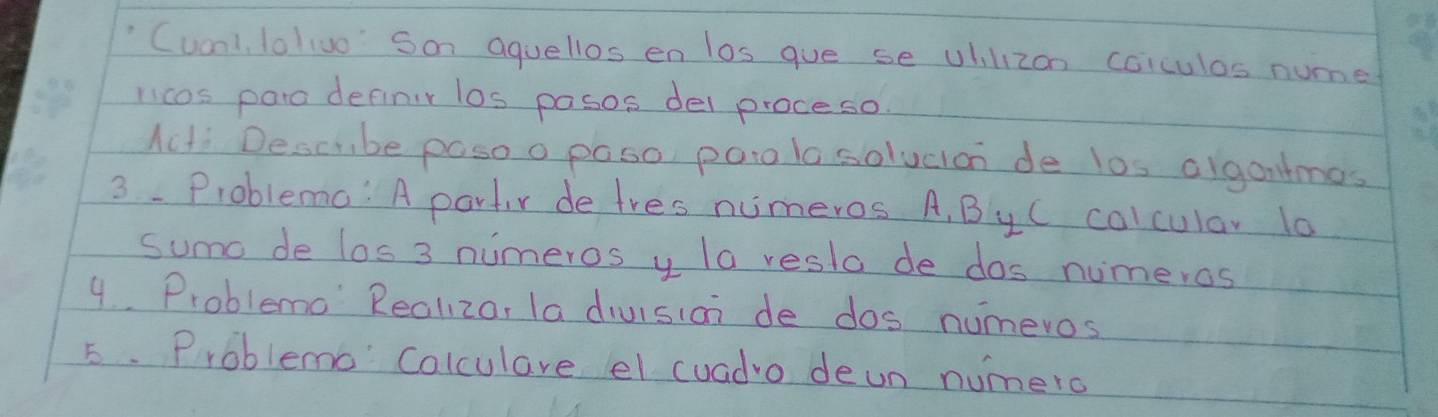 · Cuantitativo: Son aquellos en los que se utilizan cálculos núme
ricos para definir los pasos del proceso.
Act: Describe paso a paso para la solución de los algoritmos
3.- Problema: A partir de tres números A, B y C calcular la
suma de los 3 números y la resta de dos números
4.- Problema: Realizar la división de dos números
5.- Problema: Calculare el cuadro de un número